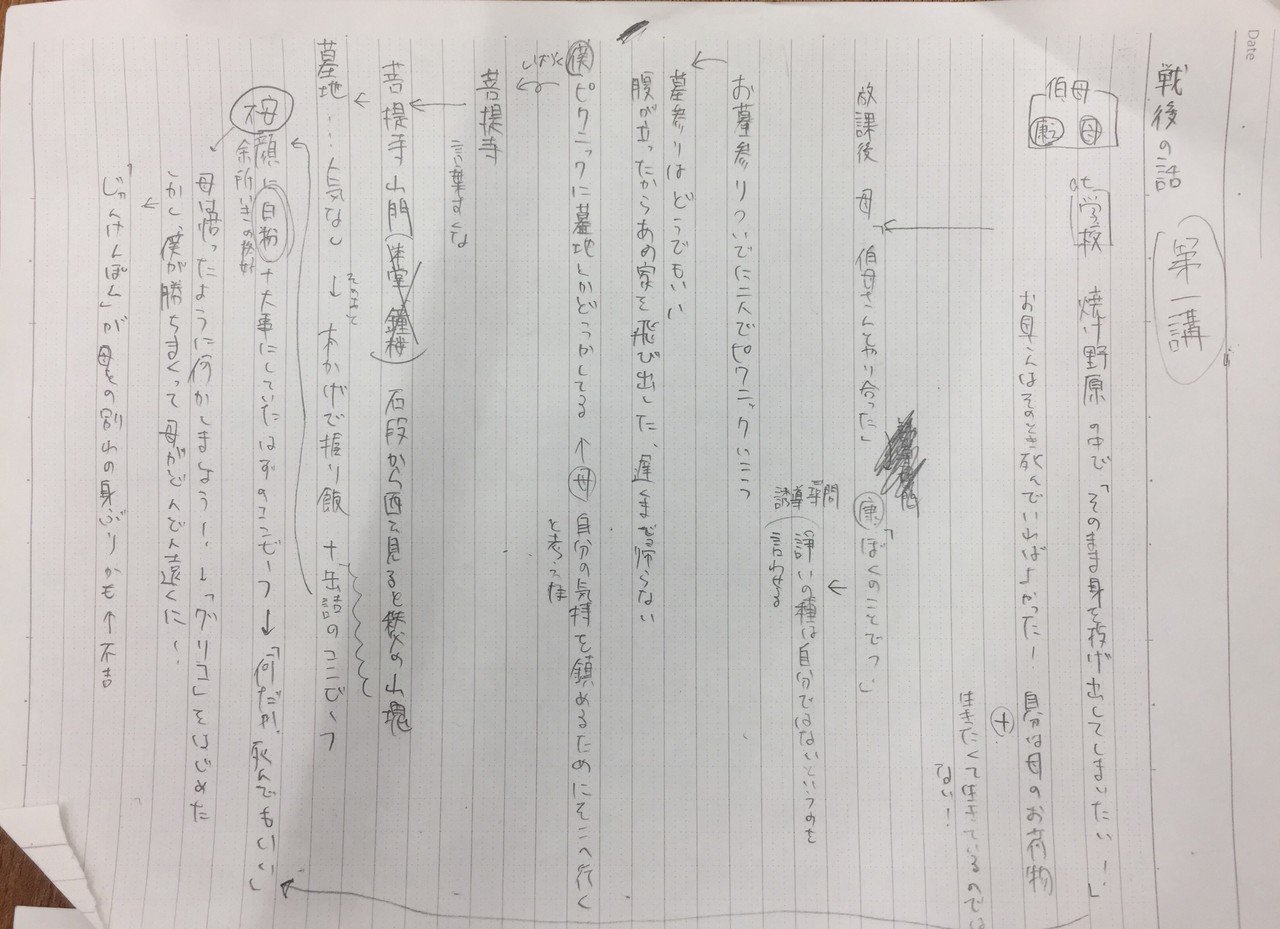 Date
戦後の話
第一講
伯母
康 母
at 学校 焼け野原の中で「そのまま身を投げ出してしまいたい…」
お母さんはそのとき死んでいればよかったー 自分は母のお荷物
+
生きたくて生きているのでは
ない!
放課後 母「伯母さんとやり合った」 康「ぼくのことでっ」
誘導尋問
諍いの種は自分ではないというのを
言わせる
お墓参りついでに二人でピクニックいこう
墓参りはどうでもいい
腹が立ったからあの家を飛び出した、遅くまで帰らない
僕 ピクニックに墓地とかどうかしてる ↑ 母 自分の気持を鎮めるためにそこへ行く
と考えたな
しばらく
菩提寺
言葉すくな
菩提寺 山門 本堂 鐘楼 石段から西を見ると 山塊
墓地…人気なし → 木かげで握り飯 + 缶詰のコンビーフ
母 顔に白粉 + 大事にしていたはずのコンビーフ → 「何だか、死んでもいい」
余所いきの
母は
ように何かしましょうー。→「グリコ」をはじめた
しかし、僕が勝ちまくって母がどんどん遠くに…
「じゃんけんぽん」が母との別れの身ぶりかも ↑ 不吉